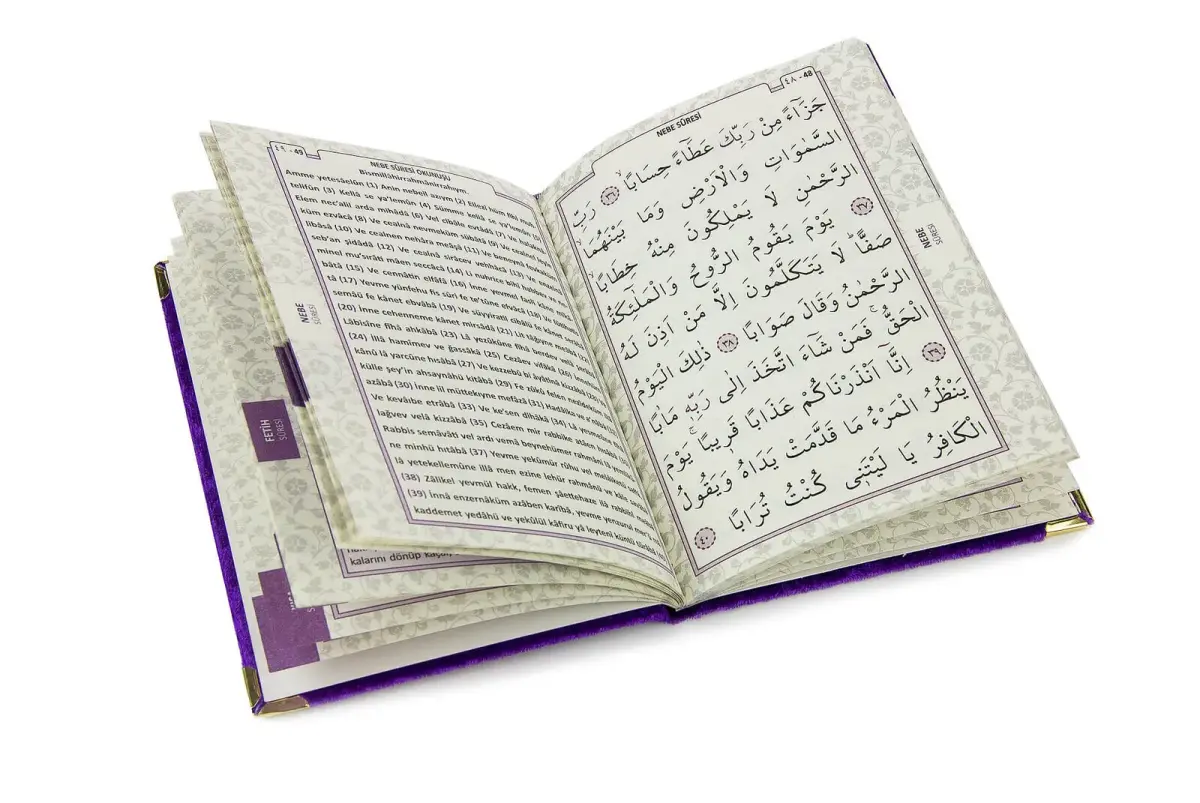 ٤٨ - 48
NEBE SÛRESİ
جَزَٓاءً مِنْ رَبِّكَ عَطَٓاءً حِسَابًاۙ ﴿٣٦﴾ رَبِّ
السَّمٰوَاتِ وَالْاَرْضِ وَمَا بَيْنَهُمَا
الرَّحْمٰنِ لَا يَمْلِكُونَ مِنْهُ خِطَابًاۚ ﴿٣٧﴾
يَوْمَ يَقُومُ الرُّوحُ وَالْمَلٰٓئِكَةُ
صَفًّاۜ لَا يَتَكَلَّمُونَ اِلَّا مَنْ اَذِنَ لَهُ
الرَّحْمٰنُ وَقَالَ صَوَابًا ﴿٣٨﴾ ذٰلِكَ الْيَوْمُ
الْحَقُّۚ فَمَنْ شَٓاءَ اتَّخَذَ اِلٰى رَبِّهٖ مَاٰبًا
﴿٣٩﴾ اِنَّٓا اَنْذَرْنَاكُمْ عَذَابًا قَرِيبًاۚ يَوْمَ
يَنْظُرُ الْمَرْءُ مَا قَدَّمَتْ يَدَاهُ وَيَقُولُ
الْكَافِرُ يَا لَيْتَنٖى كُنْتُ تُرَابًا ﴿٤٠﴾
NEBE
SÛRESİ
٤٩ - 49
NEBE SÛRESİ OKUNUŞU
Bismillâhirrahmânirrahıym.
Amme yetesâelûn (1) Anin nebeil azıym (2) Ellezî hüm fîhi muh
telifûn (3) Kellâ se ya'lemûn (4) Sümme kellâ se ya'lemûn
Elem nec'alil arda mihâdâ (6) Vel cibâle evtâdâ (7) Ve halaknâ
küm ezvâcâ (8) Ve cealnâ nevmeküm sübâtâ (9) Ve
libâsâ (10) Ve cealnen nehâra meâşâ (11) Ve beneynâ fevkaküm
seb'an şidâdâ (12) Ve cealnâ sirâcev vehhâcâ (13) Ve
minel mu'sırâti mâen seccâcâ (14) Li nuhrice bihî habbev ve
bâtâ (15) Ve cennâtin elfâfâ (16) İnne yevmel fasli kâne
tâ (17) Yevme yünfehu fis sûri fe te'tûne efvâcâ (18) Ve
semâü fe kânet ebvâbâ (19) Ve süyyiratil cibâlü fe kânet serâbâ
(20) İnne cehenneme kânet mirsâdâ (21) Lit tâğıyne meâbâ
Lâbisîne fîhâ ahkâbâ (23) Lâ yezûkûne fîhâ berden velâ
(24) İllâ hamîmev ve ğassâkâ (25) Cezâev vifâkâ (26)
kânû lâ yarcûne hısâbâ (27) Ve kezzebû bi âyâtinâ kizzâbâ
külle şey'in ahsaynâhü kitâbâ (29) Fe zûkû felen
azâbâ (30) İnne lil müttekıyne mefâzâ (31) Hadâika ve
Ve kevâıbe etrâbâ (33) Ve ke'sen dihâkâ (34) Lâ
lağvev velâ kizzâbâ (35) Cezâem mir rabbike atâen hısâbâ
Rabbis semâvâti vel ardı vemâ beynehümer rahmâni lâ
ne minhü hıtâbâ (37) Yevme yekûmür rûhu vel melâiketü
lâ yetekellemûne illâ men ezine lehür rahmânü ve kâle
(38) Zâlikel yevmül hakk, femen şâettehaze ilâ rabbihî
(39) İnnâ enzernâküm azâben karîbâ, yevme yenzurul mer'ü
kaddemet yedâhü ve yekûlül kâfiru yâ leytenî küntü türâbâ
NEBE
SÛRESİ
FETİH
SÛRESİ
kalarını dönüp